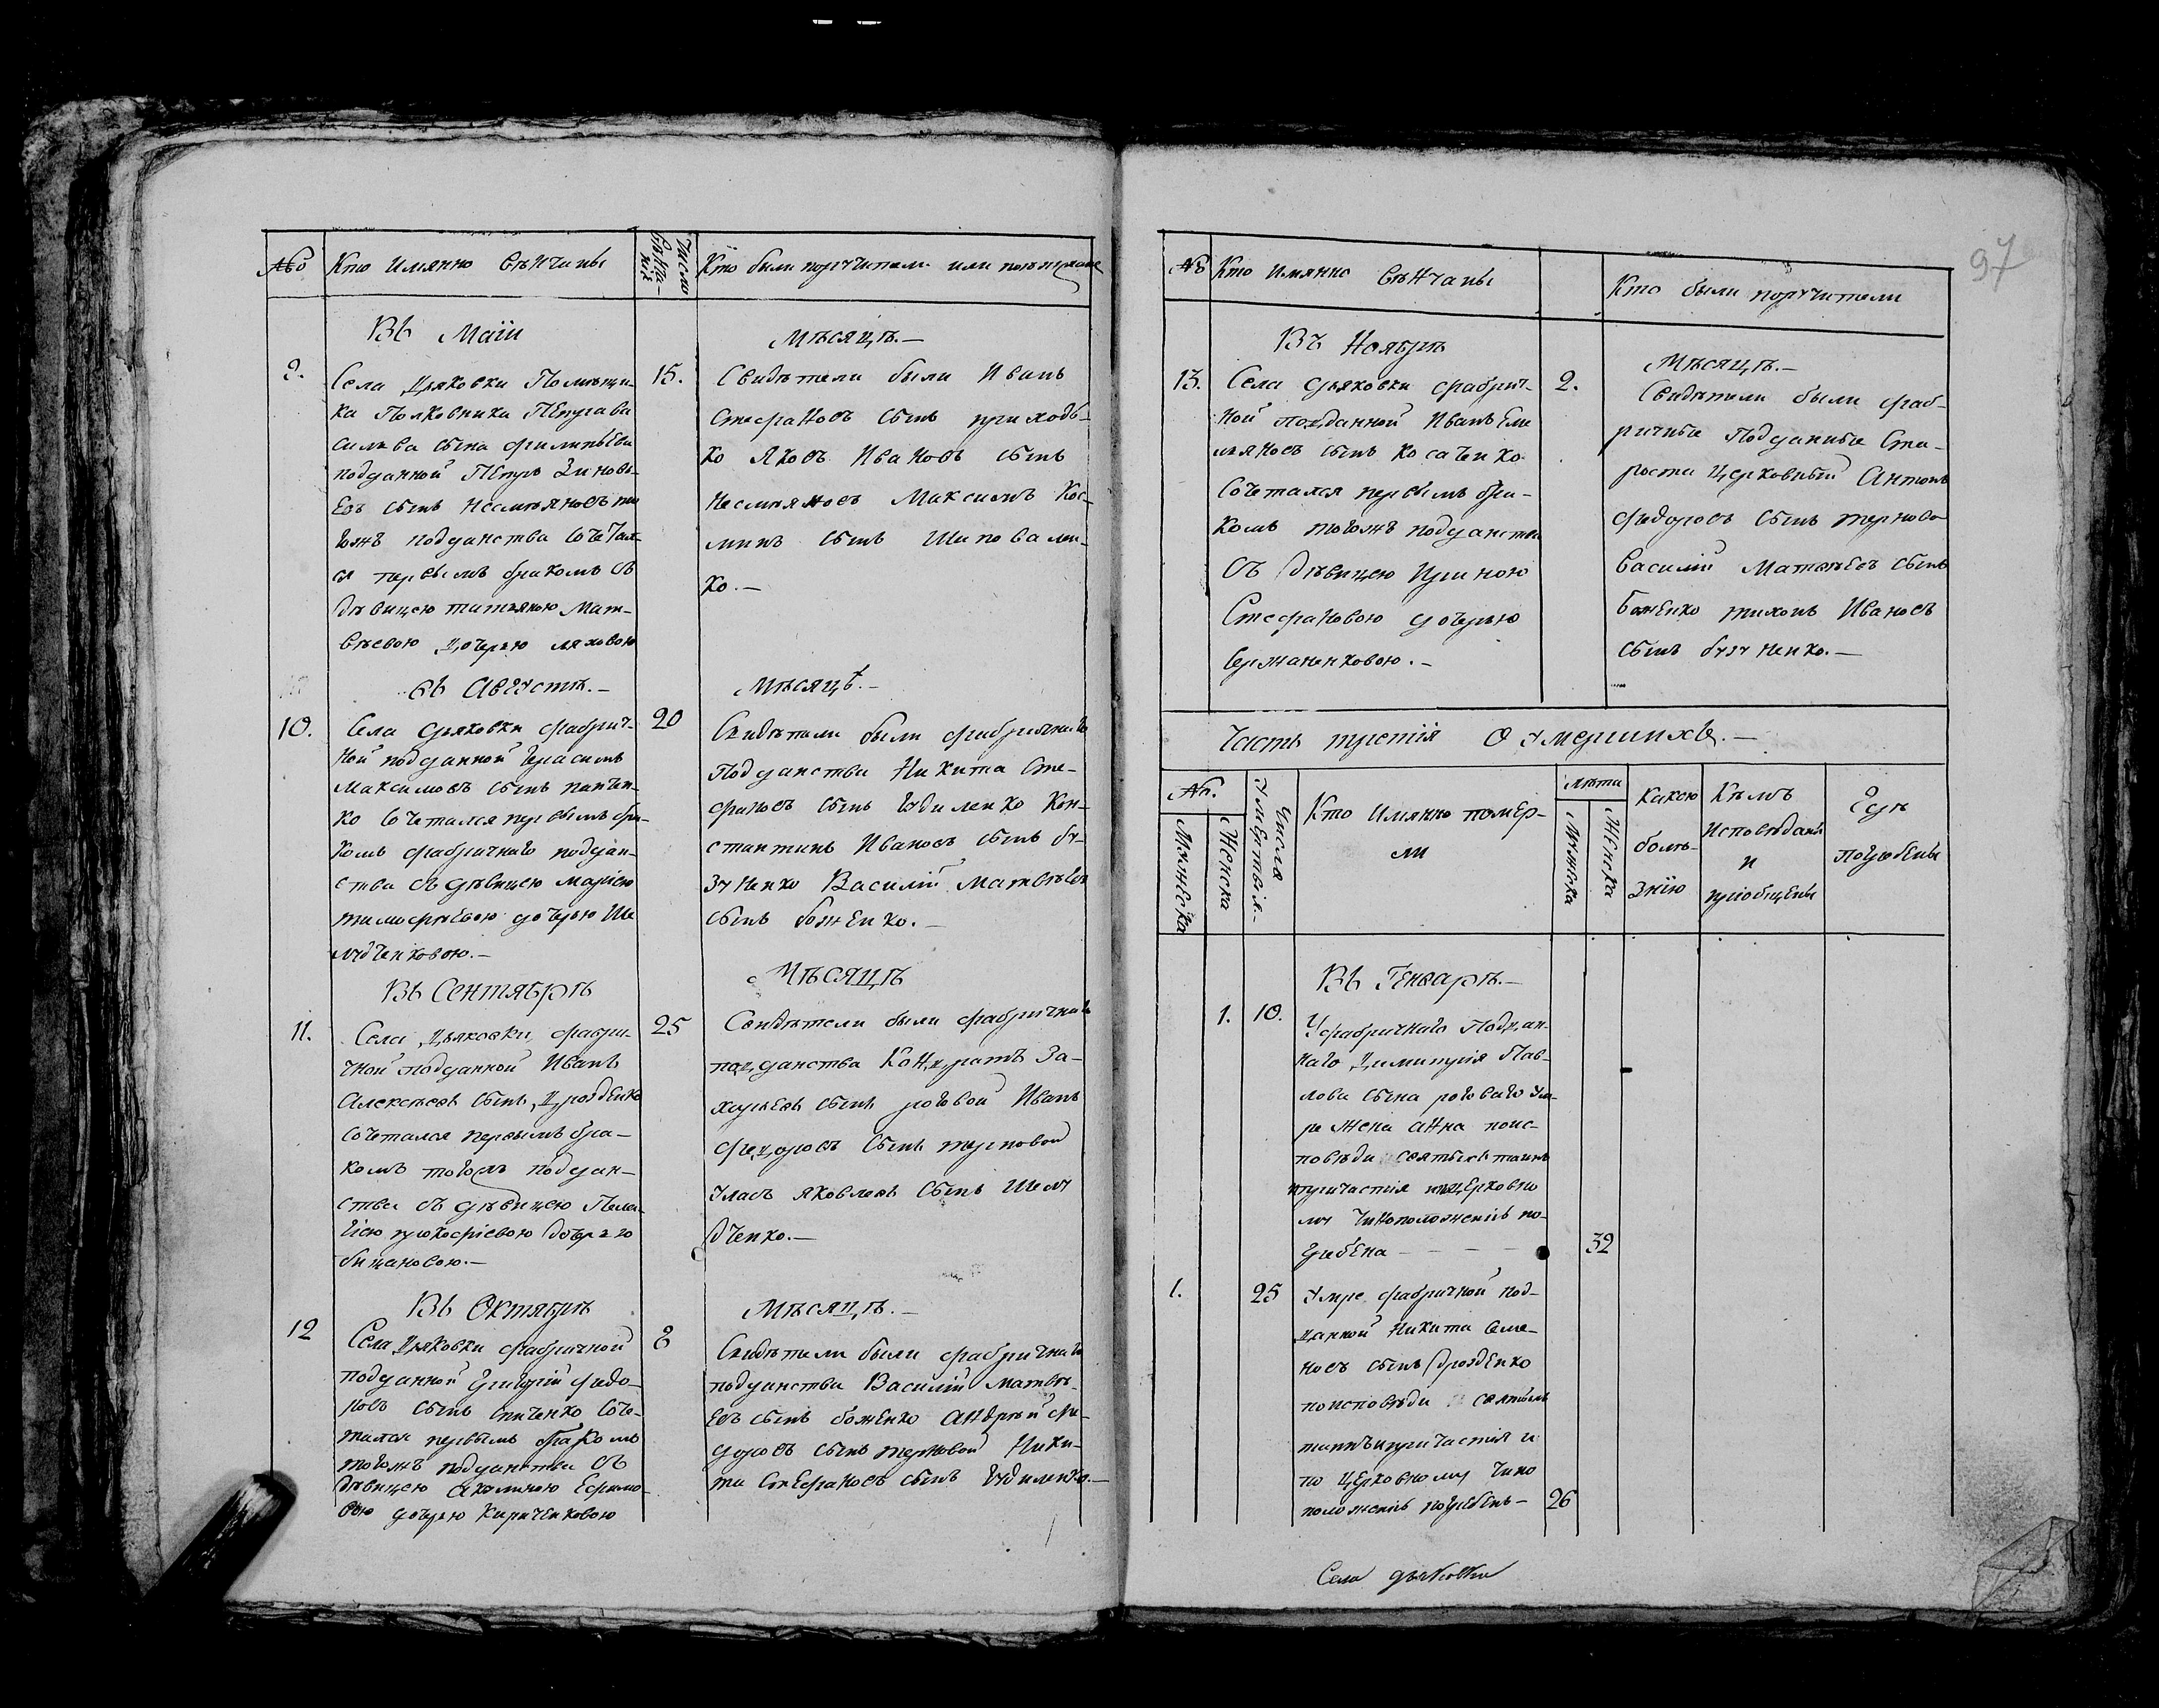 № Кто имянно вѣнчаны
Число вѣнчаныхъ
Кто были поручители или поѣзжане
Въ Маіи
Мѣсяцѣ.—
9.
Села Дьяковки Помѣщи-
ка Полковника Петра Ва
сильева сына Филипьева
подданной Петръ Зиновь-
евъ сынъ Несмѣяновъ то
гожъ подданства сочетал-
ся первымъ бракомъ съ
дѣвицею Татьяною Мат-
вѣевою дочерью Ляховою
15.
Свидѣтели были Иванъ
Стефановъ сынъ Приходь-
ко Яковъ Ивановъ сынъ
Несмѣяновъ Максимъ Кос-
минъ сынъ Шиповален-
ко.—
въ Августѣ.—
Мѣсяцѣ.—
10.
Села Дьяковки фабрич-
ной подданной Герасимъ
Максимовъ сынъ Панчен-
ко сочетался первымъ бра-
комъ фабричнаго поддан-
ства съ дѣвицею Маріею
Тимофѣевою дочерью Ше
лудченковою.—
20
Свидѣтели были фабричнаго
Подданства Никита Сте-
фановъ сынъ Гудименко Кон-
стантинъ Ивановъ сынъ Бу-
зуненко Василій Матвѣевъ
сынъ Боженко.—
Въ Сентябрѣ
Мѣсяцѣ
11.
Села Дьяковки фабри-
чной подданной Иванъ
Алексѣевъ сынъ Дрозденко
сочетался первымъ бра-
комъ тогожъ поддан-
ства съ дѣвицею Пела-
гіею Прокофіевою дочерью
Бицановою.—
25
Свидѣтели были фабричнаго
подданства Кондратъ За-
харьевъ сынъ Роговой Иванъ
Федоровъ сынъ Терновой
Уласъ Яковлевъ сынъ Шелу
дченко.—
Въ Октябрѣ
Мѣсяцѣ.—
12
Села Дьяковки фабричной
подданной Григорій Федо-
ровъ сынъ Спиченко соче-
тался первымъ бракомъ
тогожъ подданства съ
дѣвицею Акилиною Ефимо-
вою дочерью Кириченковою
8
Свидѣтели были фабричнаго
подданства Василій Матвѣ-
евъ сынъ Боженко Андрѣй Фе-
доровъ сынъ Терновой Ники-
та Стефановъ сынъ Гудименко.—
97
№ Кто имянно вѣнчаны
Кто были поручители
Въ Ноябрѣ
Мѣсяцѣ.—
13.
Села Дьяковки фабрич-
ной подданной Иванъ Еме
льяновъ сынъ Косаченко
сочетался первымъ бра-
комъ тогожъ подданства
съ дѣвицею Ириною
Стефановою дочерью
Сержаненковою.—
2.
Свидѣтели были фаб-
ричные Подданные Ста-
роста Церковный Антонъ
Федоровъ сынъ Терново
Василій Матвѣевъ сынъ
Боженко Тихонъ Ивановъ
сынъ Бузуненко.—
Часть третія О умершихъ.—
№.
Мужеска
Женска
Число умертвія.
Кто Имянно помер-
ли
Лѣта
Мужеска
Женска
Какою
болѣ-
знію
Кѣмъ
исповѣданы
и
приобщены
Гдѣ
погребены
Въ Генварѣ.—
1. 10.
У фабричнаго Поддан-
наго Димитрія Пав-
лова сына Роговаго ум-
ре жена Анна поис-
повѣди святыхъ таинъ
причастія поцерковно
му чиноположенію по-
гребена — — — —
32
1. 25
Умре фабричной под-
данной Никита Семе-
новъ сынъ Дрозденко
поисповѣди святыхъ
таинъ причастія и
по Церковному чино
положенію погребенъ—
26
Села Дьяковки